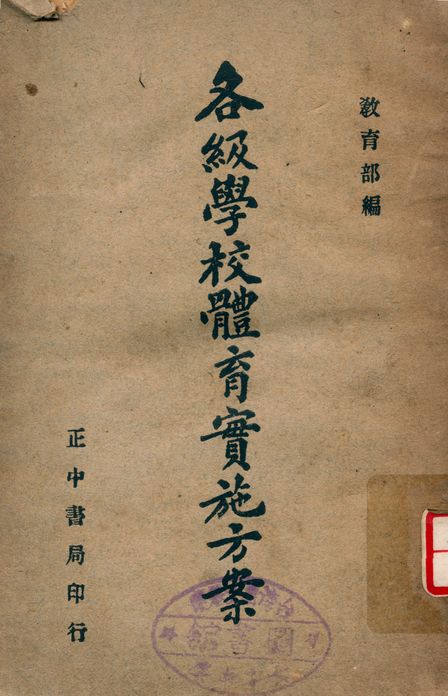 教育部編
各級學校體育實施方案
正中書局印行
圖書館